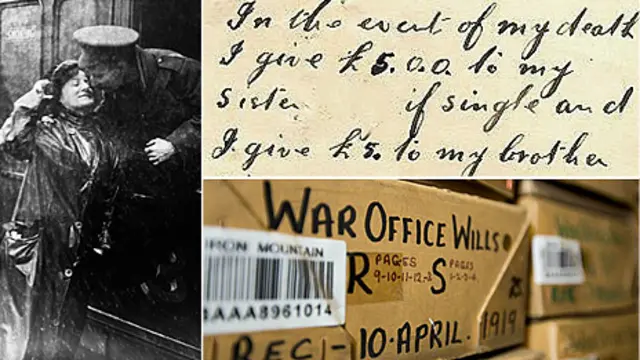 In the event of my death
I give £5.0.0. to my
sister if single and
I give £5. to my brother
WAR OFFICE WILLS
IRON MOUNTAIN
R PAGES 9-10-11-12- S PAGES 1-2-3-4.
AAAA8961014
REC1-10·APRIL. 1919